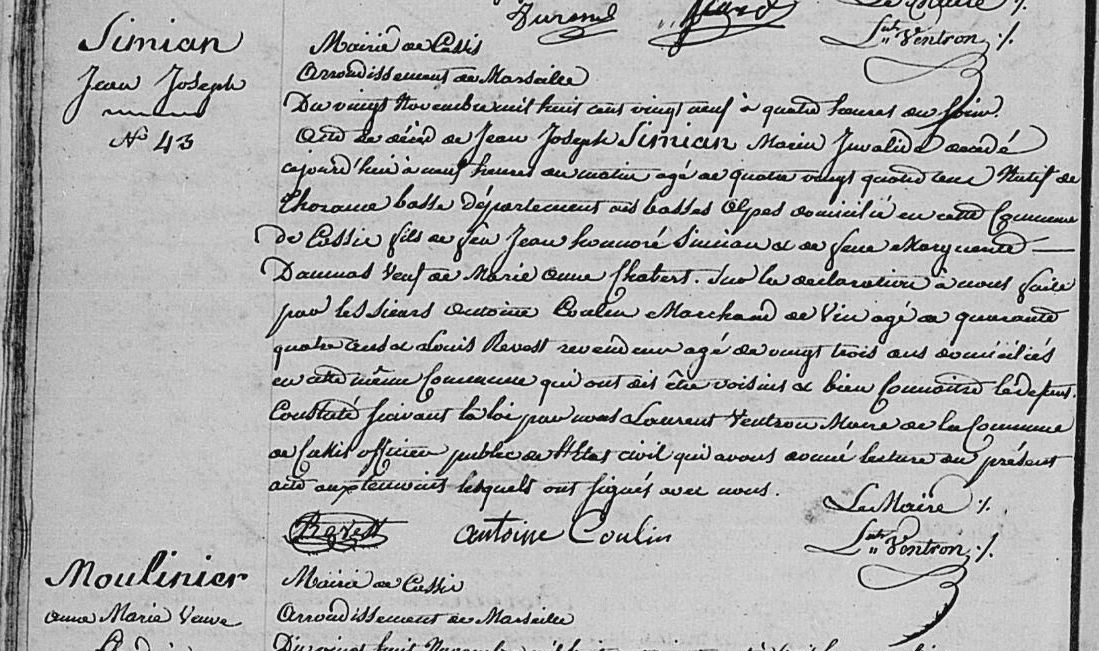 Le Maire ./.
Lnt Ventron ./.
Simian
Jean Joseph
No 43
Mairie de Cassis
Arrondissement de Marseille
Du vingt Novembre mil huit cens vingt neuf à quatre heures du soir.
Acte de décès de Jean Joseph Simian Marin Invalide decedé
aujourd'hui à neuf heures du matin agé de quatre vingt quatre ans Natif de
Thorame basse département des basses Alpes domicilié en cette Commune
de Cassis fils de feu Jean honnoré Simian & de feue Marguerite
Daumas Veuf de Marie Anne Chabert. Sur la declaration à nous faite
par les sieurs Antoine Coulin Marchand de Vin agé de quarante
quatre ans & Louis Revest revendeur agé de vingt trois ans domiciliés
en cette même Commune qui ont dit être voisins & bien Connoitre le defunt.
Constaté suivant la loi par nous Laurent Ventron Maire de la Commune
de Cassis officier public de l'Etat civil qui avons donné lecture du présent
acte aux temoins lesquels ont signés avec nous.
Le Maire ./.
Revest Antoine Coulin Lnt Ventron ./.
Moulinier
anne Marie Veuve
Mairie de Cassis
Arrondissement de Marseille
Du vingt huit Novembre